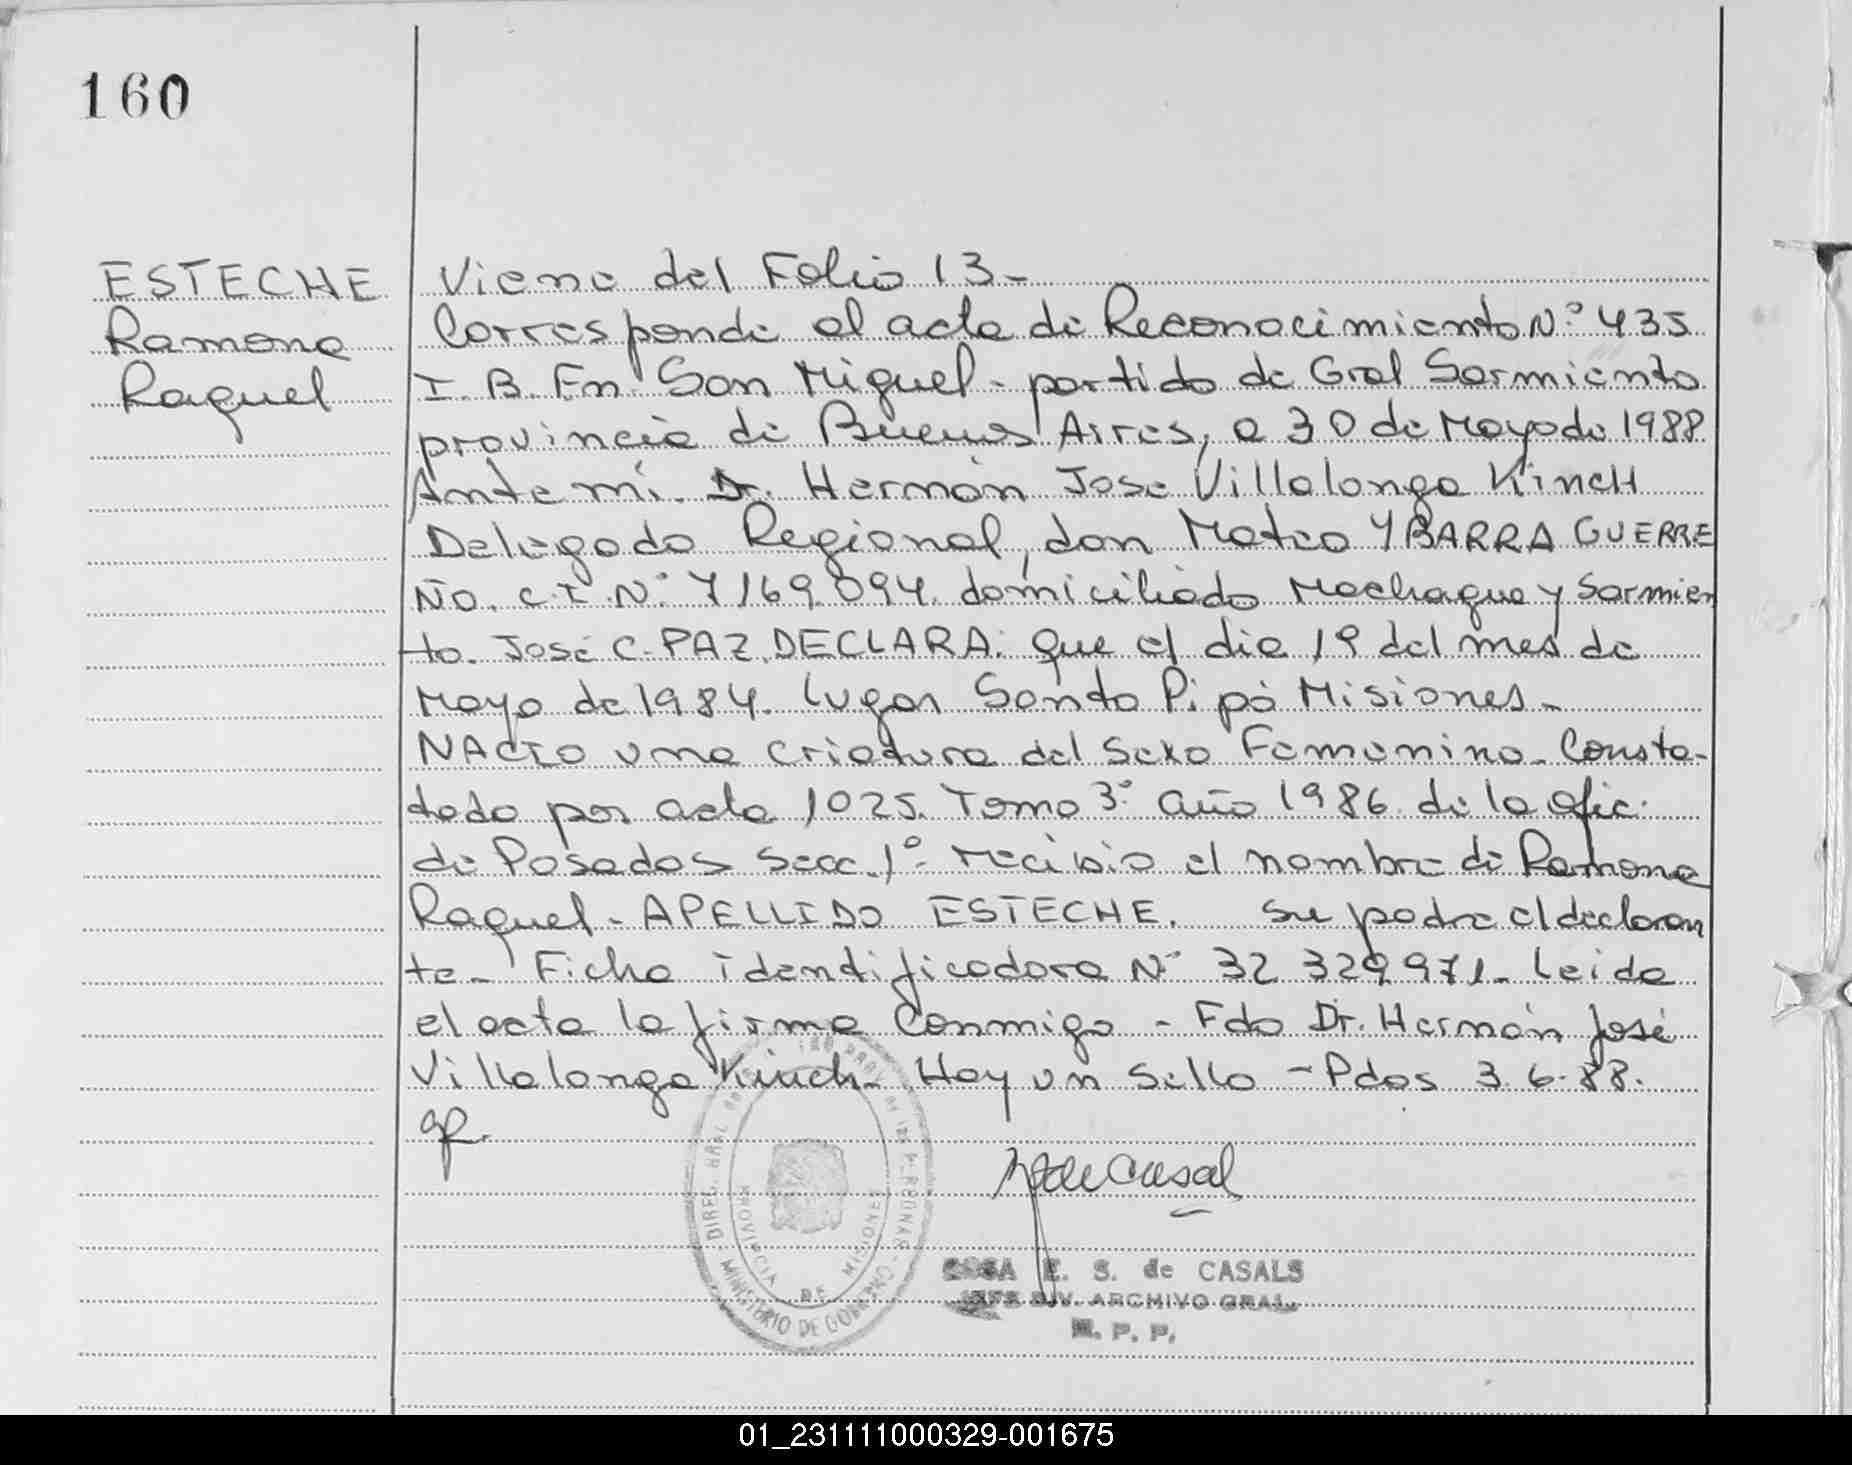 160
ESTECHE
Ramona
Raquel
Viene del Folio 13-
Corresponde al acta de Reconocimiento N° 435
I. B. En San Miguel - partido de Gral Sarmiento
provincia de Buenos Aires, a 30 de Mayo de 1988
Ante mí. Dr. Hernán Jose Villalonga Kinch
Delegado Regional, don Mateo YBARRA GUERRE
ÑO. C.I. N° 7169.094. domiciliado Machague y Sarmien
to. José C. PAZ. DECLARA: Que el día 19 del mes de
Mayo de 1984. lugar Santo Pipó Misiones-
NACIO una criatura del Sexo Femenino. Consta-
tado por acta 1025. Tomo 3° año 1986. de la ofic.
de Posadas Secc. 1° recibio el nombre de Ramona
Raquel - APELLIDO ESTECHE. Su padre el declaran
te- Ficha identificadora N° 32 329971- Leida
el acta la firma conmigo - Fdo Dr. Hernán José
Villalonga Kinch- Hay un Sello - Pdas 3.6.88.
gp.
de Casal
DIREC. GRAL
PROV. DE LAS PERSONAS
PROVINCIA DE MISIONES
MINISTERIO DE GOBIERNO
E. S. de CASALS
JEFE DIV. ARCHIVO GRAL.
R. P. P.
01_231111000329-001675